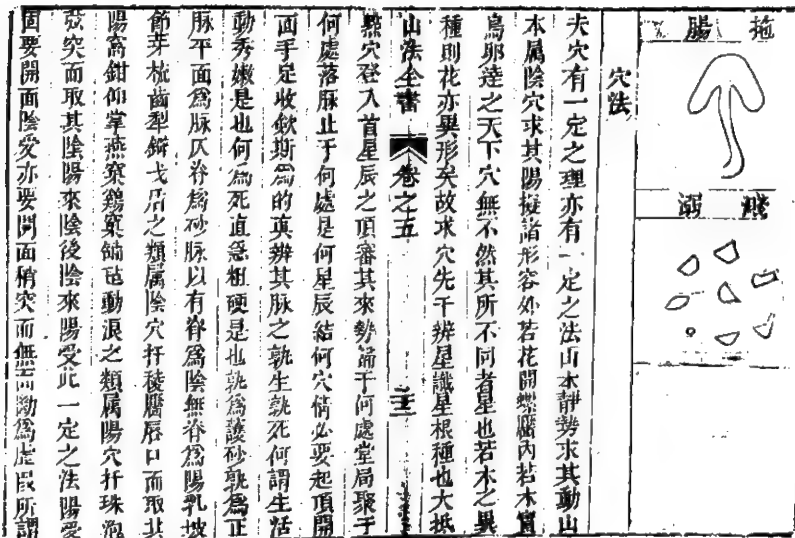 拖腸
飛溺
穴法
夫穴有一定之理亦有一定之法山本靜勢求其動山
本属陰穴求其陽擬諸形容妙若花開螺靨內若木實
鳥卵達之天下穴無不然其所不同者星也若木之異
種則花亦異形矣故求穴先于辨星識星根種也大抵
山法全書 卷之五 三
點穴登入首星辰之頂審其來勢當于何處堂局聚于
何處落脉止于何處是何星辰結何穴情必要起頂開
面手足收歛斯為的真辨其脉之孰生孰死何謂生活
動秀嫩是也何為死直急粗硬是也孰為護砂孰為正
脉平面為脉仄脊為砂脉以有脊為陰無脊為陽乳坡
節芽梳齒犁鐴戈盾之類属陰穴扦稜靨唇口而取其
陽窩鉗仰掌燕窠鷄窠鍋底動浪之類属陽穴扦珠泡
㽞突而取其陰陽來陰後陰來陽受此一定之法陽受
固要開面陰受亦要開面稍突而無面㔉為虛叚所謂